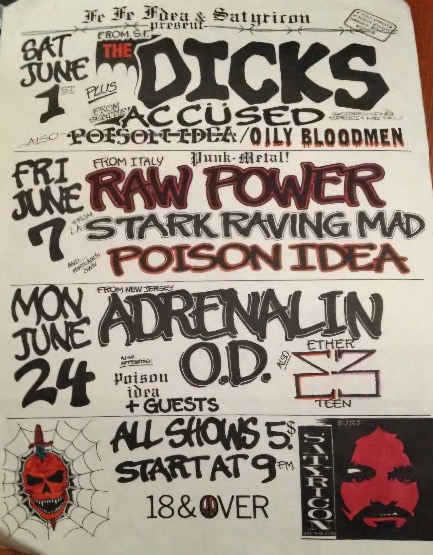 Fe Fe Fdea & Satyricon
present
SAT
JUNE
1ST
FROM S.F.
THE DICKS
PLUS
FROM
ACCÜSED
SPEED METAL
ALSO POISON IDEA/OILY BLOODMEN
FRI
JUNE
7
FROM ITALY
Punk-Metal!
RAW POWER
FROM
L.A.
STARK RAVING MAD
AND... PORTLAND'S
OWN
POISON IDEA
MON
JUNE
24
FROM NEW JERSEY
ADRENALIN
O.D.
ALSO
Poison
idea
+ GUESTS
ALSO
ETHER
TEEN
ALL SHOWS 5$
START AT 9 PM
18 & OVER
SATYRICON